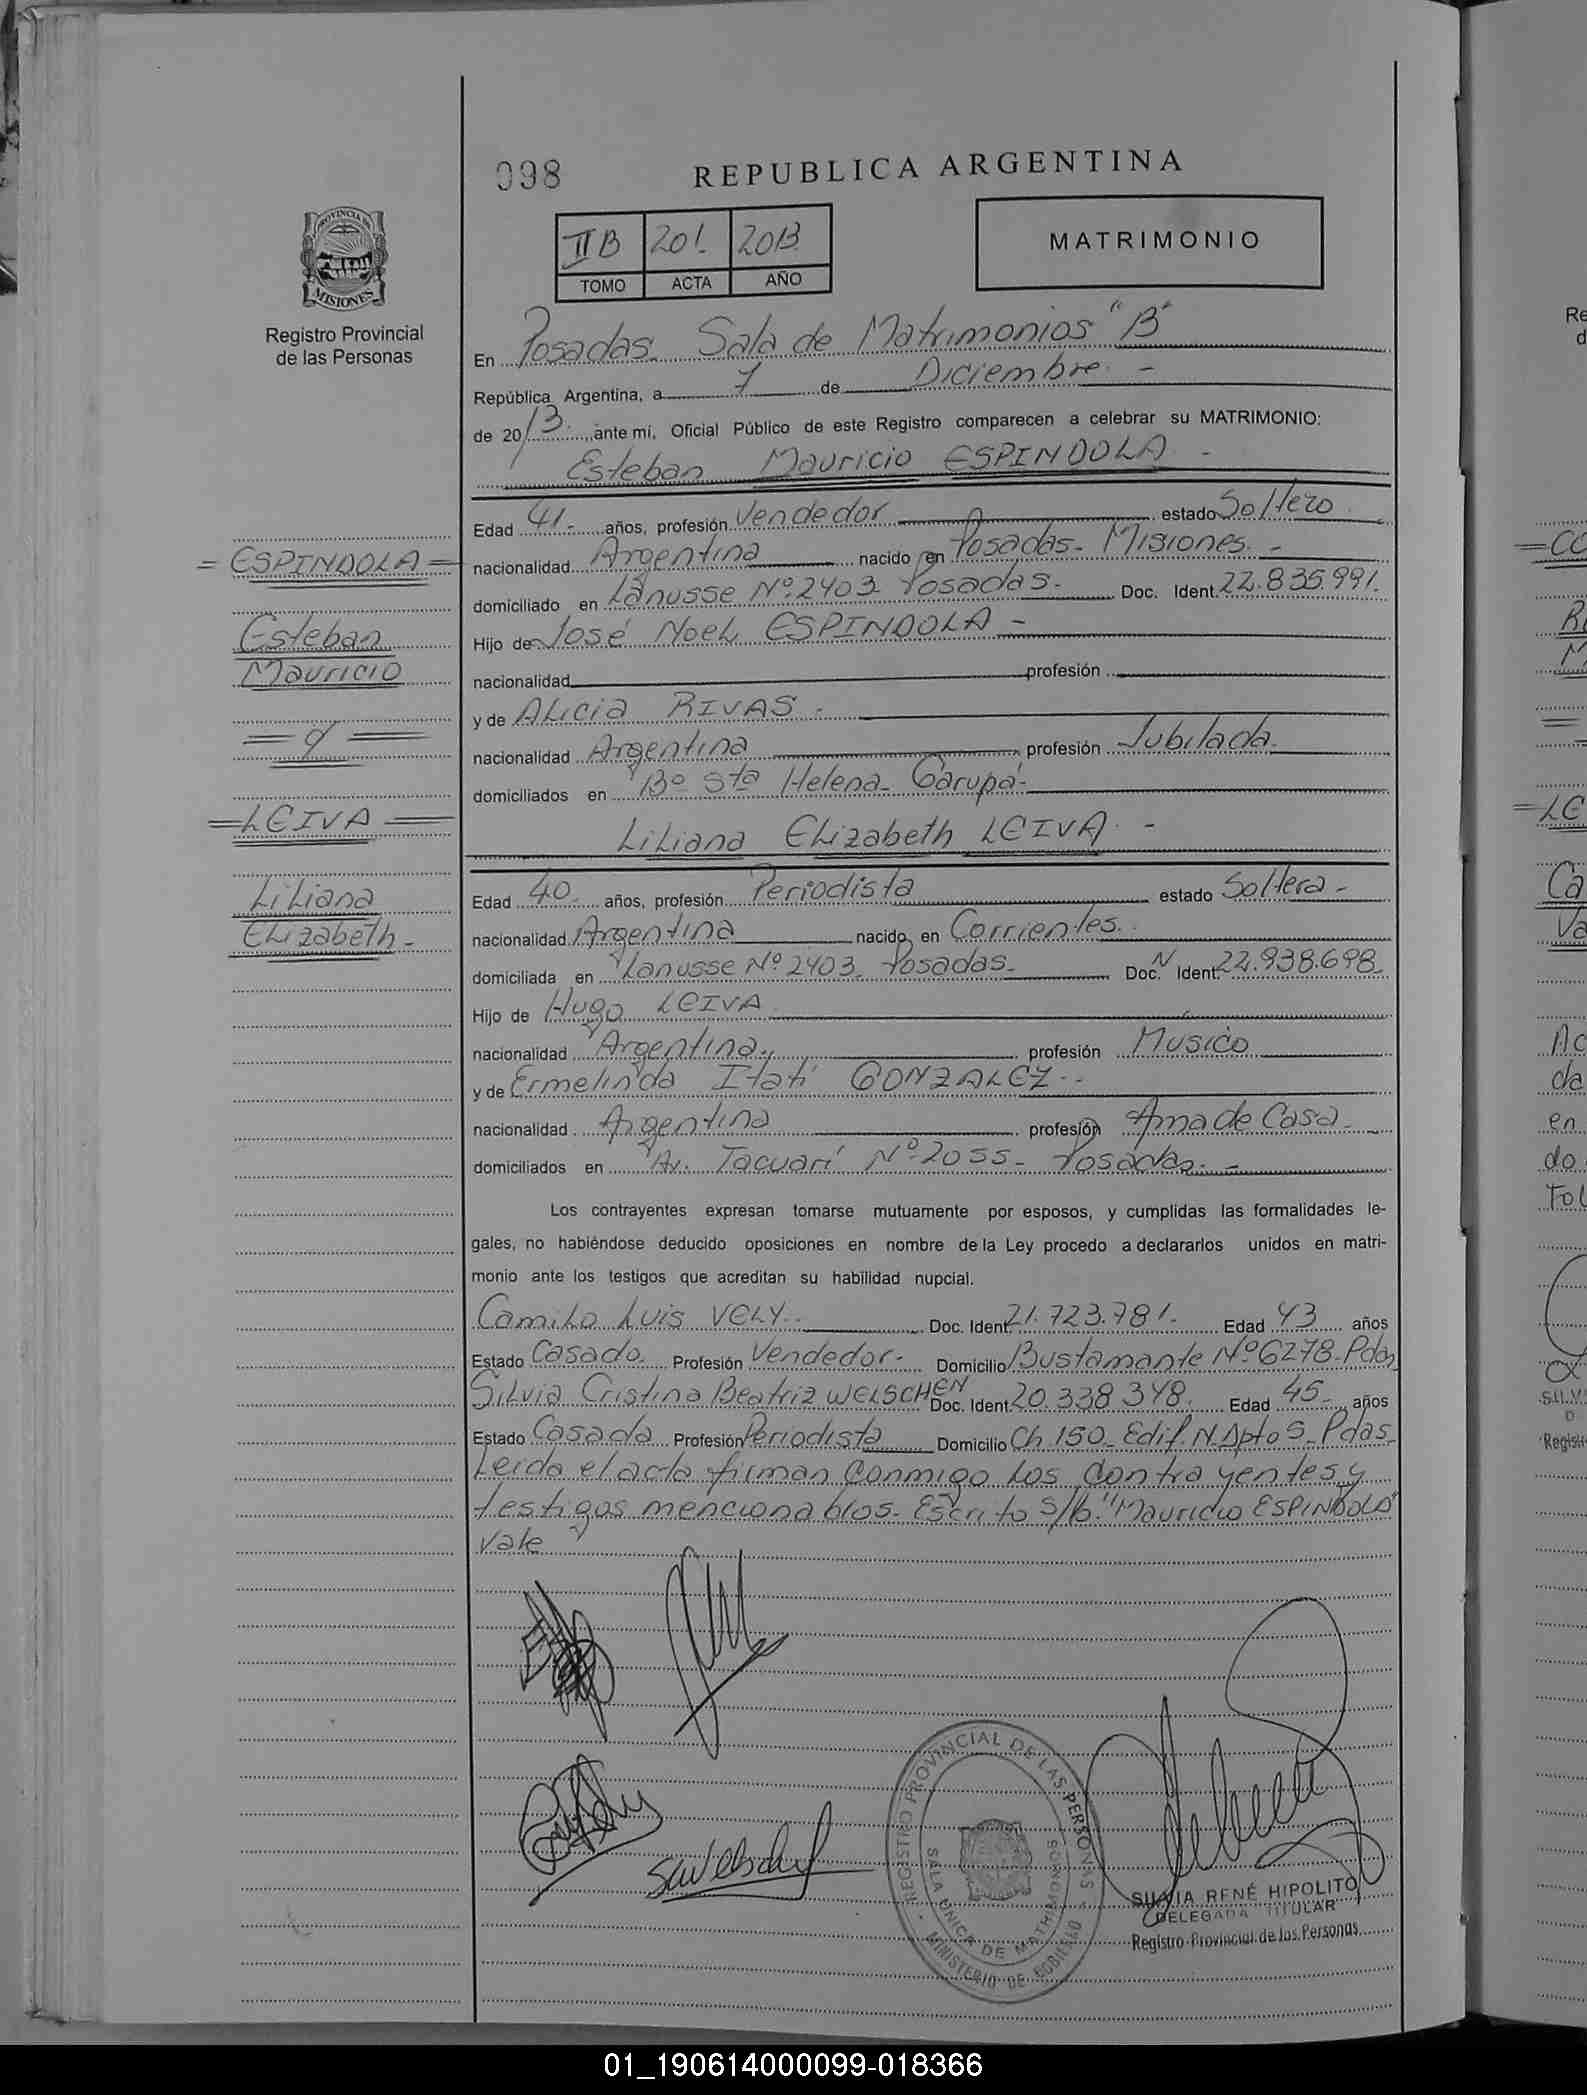 098
REPUBLICA ARGENTINA
PROVINCIA DE
MISIONES
Registro Provincial
de las Personas
II B 201. 2013
TOMO ACTA AÑO
MATRIMONIO
En Posadas. Sala de Matrimonios "B"
República Argentina, a 7 de Diciembre. -
de 2013. ,ante mí, Oficial Público de este Registro comparecen a celebrar su MATRIMONIO:
Esteban Mauricio ESPINDOLA -
Edad 41.- años, profesión Vendedor estado Soltero
nacionalidad Argentina nacido en Posadas - Misiones. -
domiciliado en Lanusse Nº 2403 Posadas. Doc. Ident. 22.835.991.
Hijo de José Noel ESPINDOLA -
nacionalidad profesión
y de Alicia RIVAS.
nacionalidad Argentina profesión Jubilada.
domiciliados en Bº Sta Helena - Garupá -
Liliana Elizabeth LEIVA. -
Edad 40. años, profesión Periodista estado Soltera -
nacionalidad Argentina nacido en Corrientes.
domiciliada en Lanusse Nº 2403 Posadas. Doc. N Ident. 22.938.698
Hijo de Hugo LEIVA
nacionalidad Argentina. profesión Musico
y de Ermelinda Itatí GONZALEZ -
nacionalidad Argentina profesión Ama de Casa -
domiciliados en Av. Tacuarí Nº 2055 - Posadas. -
Los contrayentes expresan tomarse mutuamente por esposos, y cumplidas las formalidades le-
gales, no habiéndose deducido oposiciones en nombre de la Ley procedo a declararlos unidos en matri-
monio ante los testigos que acreditan su habilidad nupcial.
Camilo Luis VELY. Doc. Ident. 21.723.781. Edad 43 años
Estado Casado. Profesión Vendedor. Domicilio Bustamante Nº 6278. Pdas
Silvia Cristina Beatriz WELSCHEN Doc. Ident. 20.338.348. Edad 45 años
Estado Casada Profesión Periodista Domicilio Ch. 150 - Edif. N. Apto 5 - Pdas
Leida el acta firman conmigo los contrayentes y
testigos mencionados. Escrito S/b. "Mauricio ESPINDOLA"
vale
=ESPINDOLA=
Esteban
Mauricio
=LEIVA=
Liliana
Elizabeth -
REGISTRO PROVINCIAL DE LAS PERSONAS
SALA UNICA DE MATRIMONIOS
MINISTERIO DE GOBIERNO
SILVIA RENÉ HIPOLITO
DELEGADA TITULAR
Registro Provincial de las Personas
01_190614000099-018366